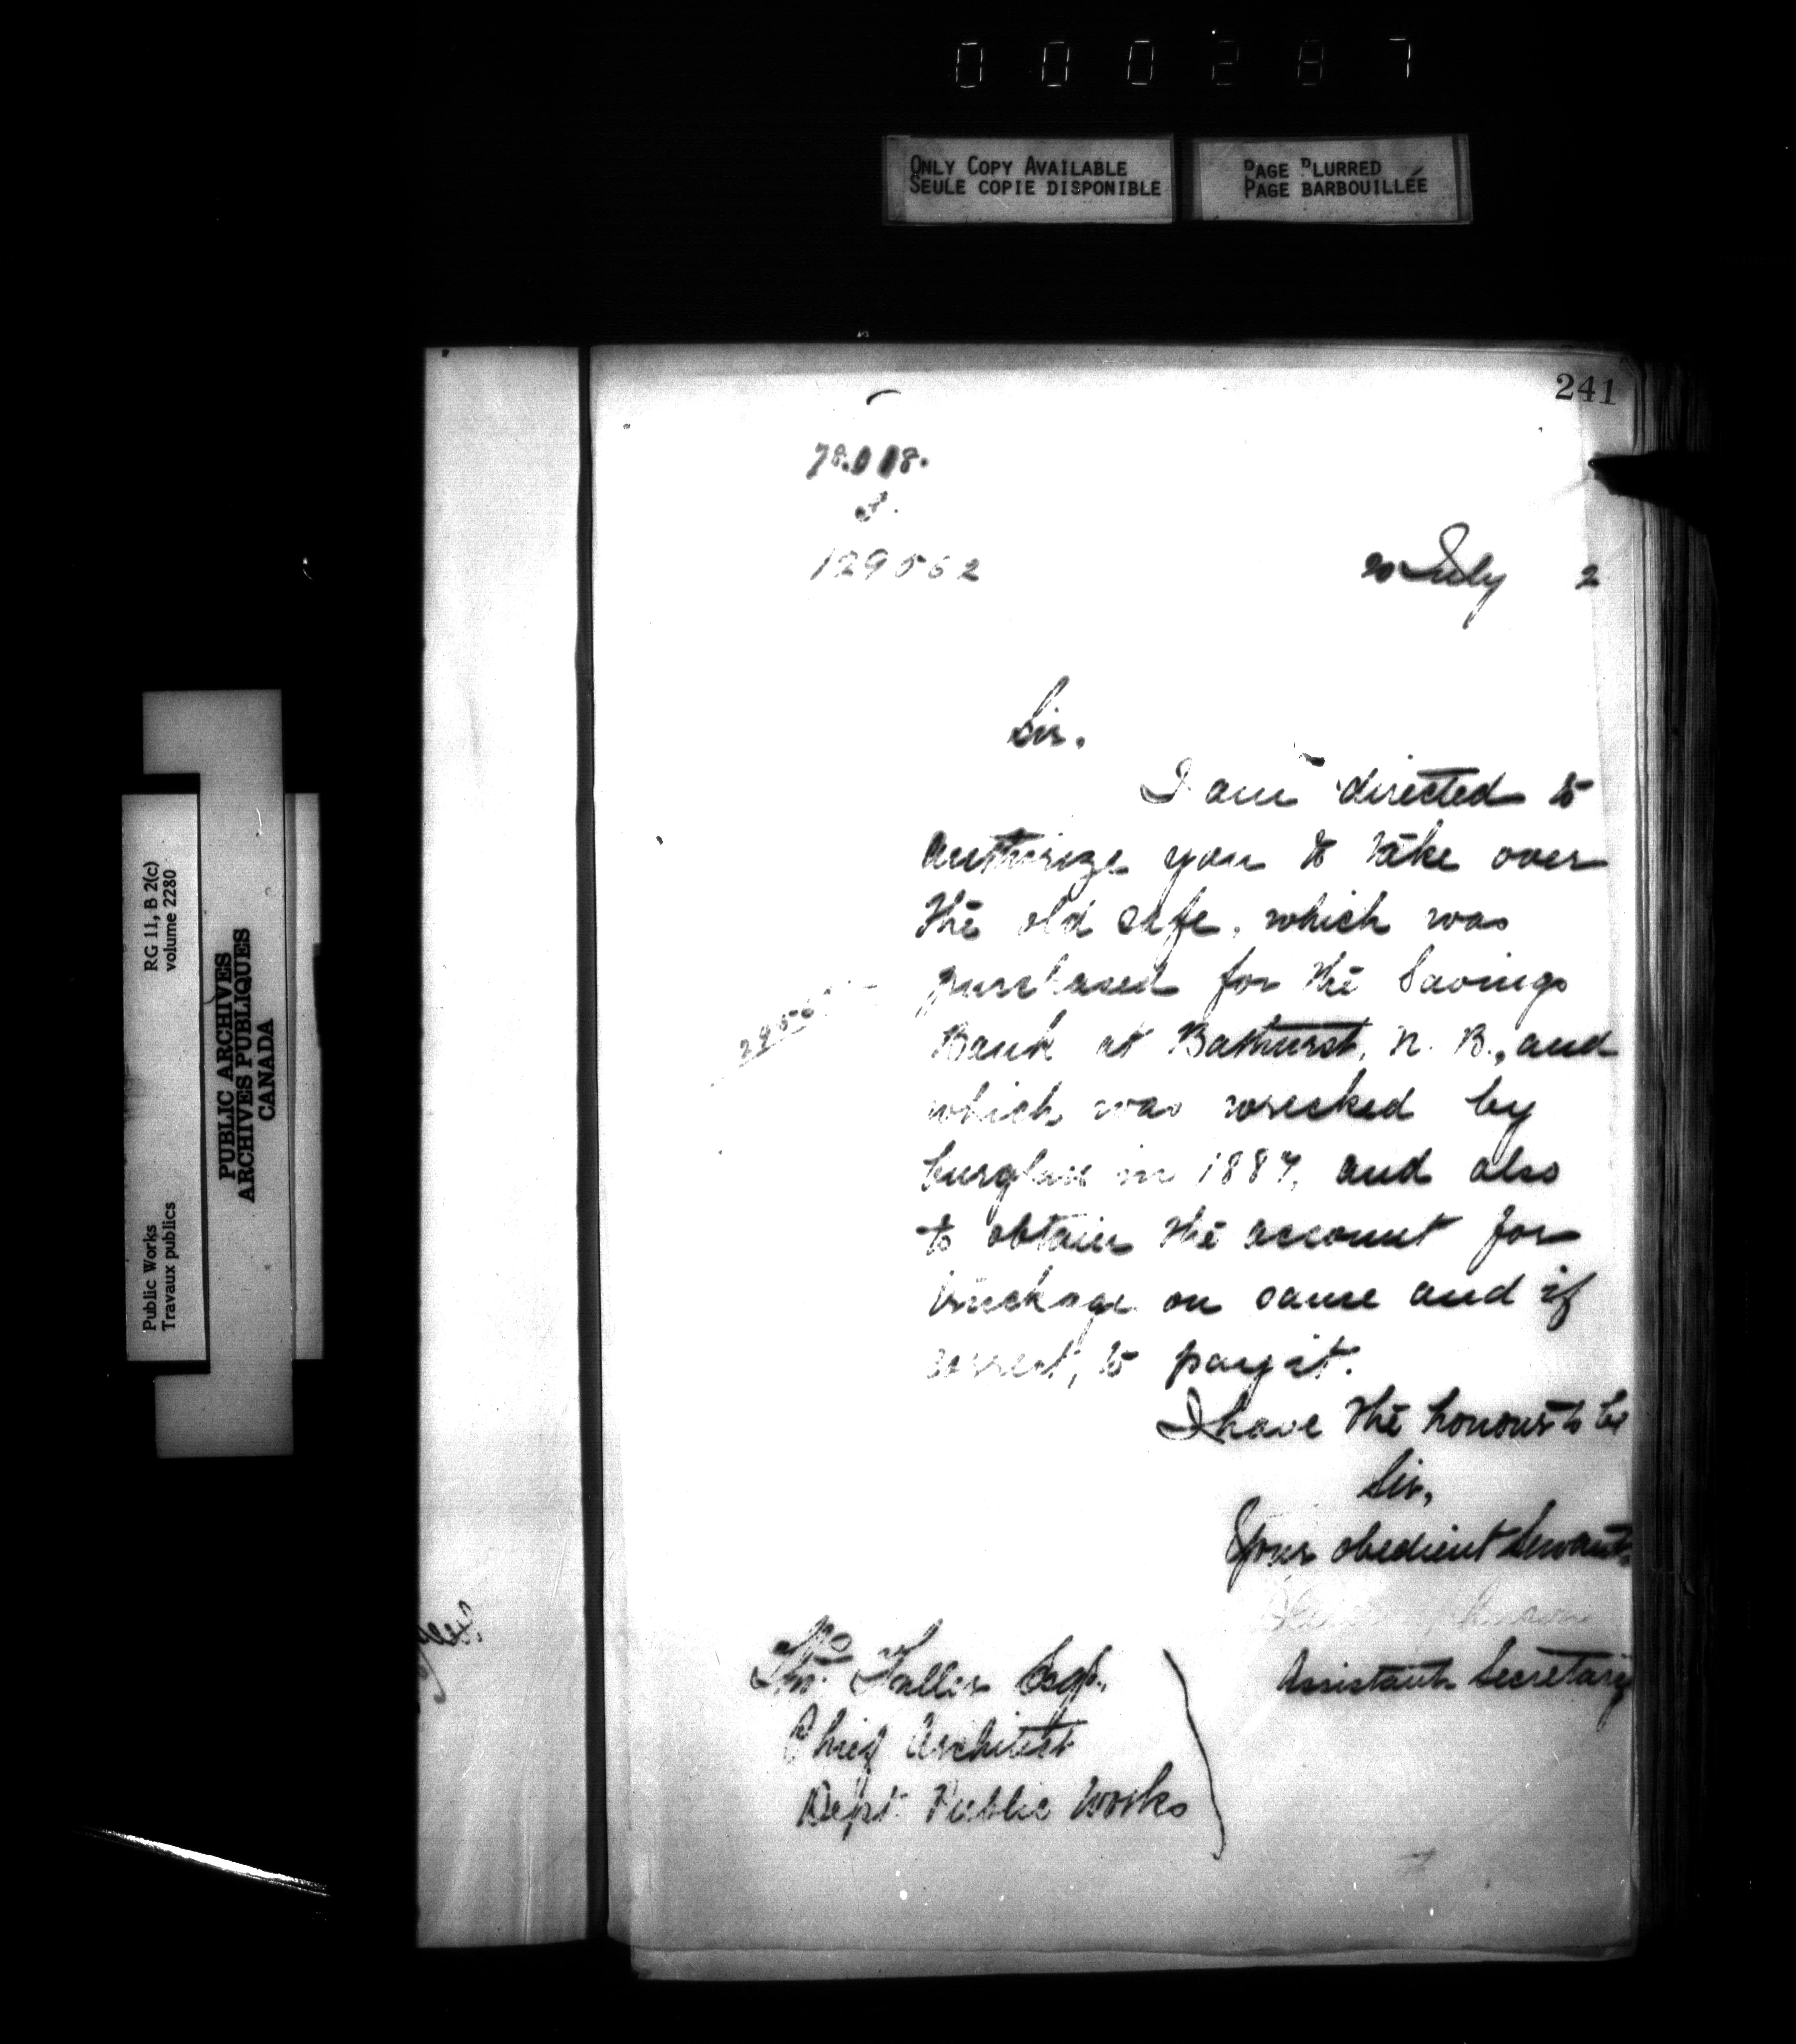 000287
ONLY COPY AVAILABLE
SEULE COPIE DISPONIBLE
PAGE BLURRED
PAGE BARBOUILLÉE
Public Works
Travaux publics
RG 11, B 2(c)
volume 2280
PUBLIC ARCHIVES
ARCHIVES PUBLIQUES
CANADA
241
129562
20 July 2
Sir,
I am directed to
authorize you to take over
the old safe, which was
purchased for the Savings
Bank at Bathurst, N. B., and
which was wrecked by
burglars in 1887, and also
to obtain the account for
truckage on same and if
correct, to pay it.
I have the honour to be
Sir,
Your obedient Servant
Assistant Secretary
Thos. Fuller Esqr.,
Chief Architect
Dept. Public Works